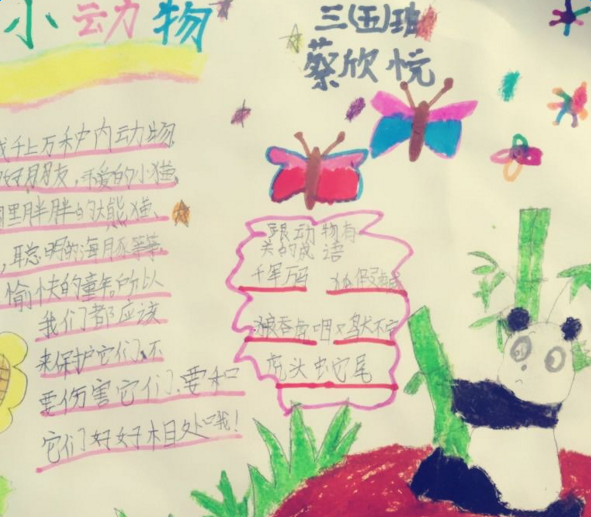 小动物
三(五)班
蔡欣悦
成千上万种动物
好朋友,可爱的小猫
里胖胖的大熊猫
,聪明的海豚等等
愉快的童年所以
我们都应该
来保护它们,不
要伤害它们,要和
它们好好相处哦!
跟动物有
关的成语
千军万
狐假虎威
狼吞虎咽 鸡犬不宁
虎头蛇尾